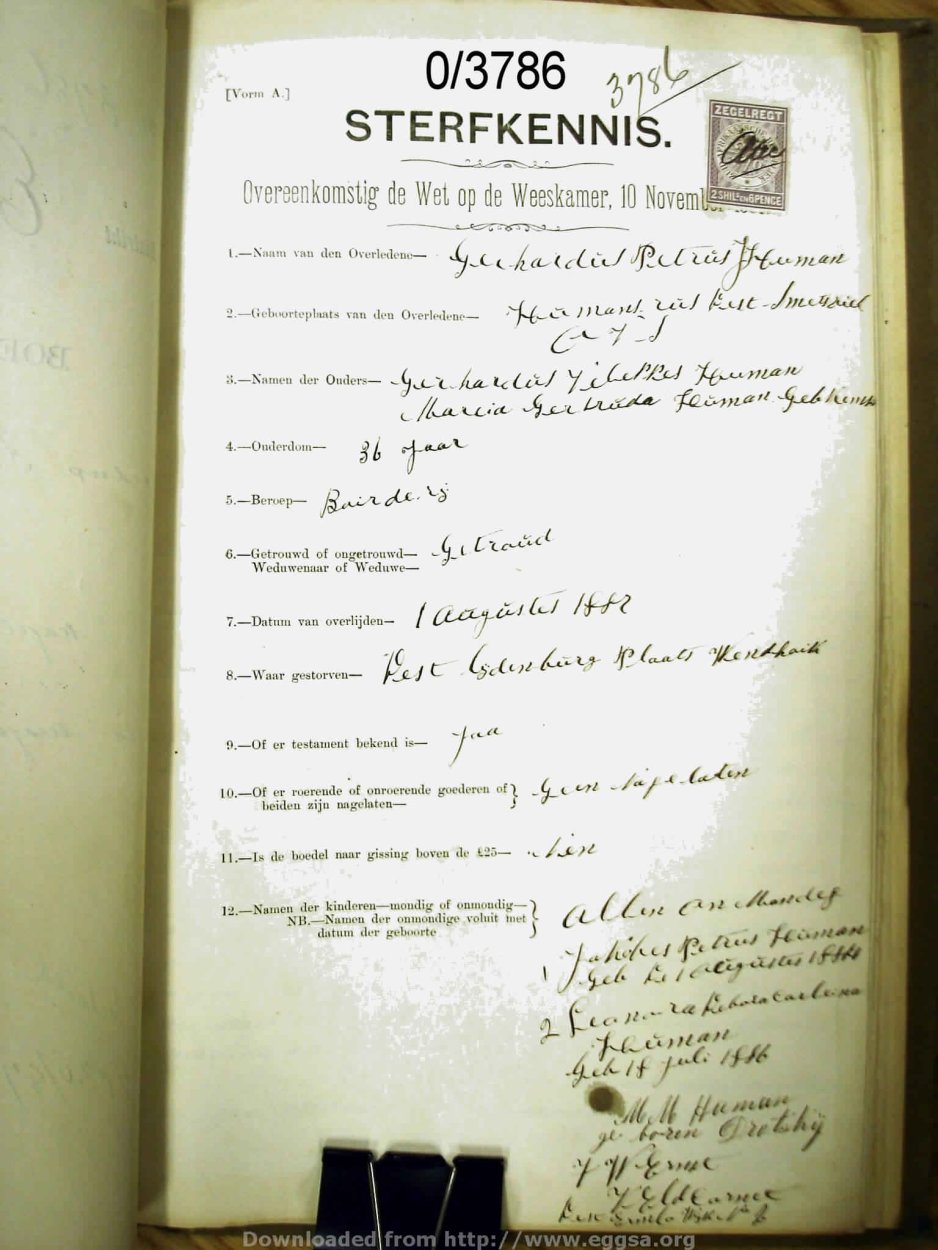 0/3786
3786
[Vorm A.]
STERFKENNIS.
ZEGELREGT
2 SHILS EN 6 PENCE
Overeenkomstig de Wet op de Weeskamer, 10 Novem
1.—Naam van den Overledene— Gerhardus Petrus J Human
2.—Geboorteplaats van den Overledene— Humans rus Dist
3.—Namen der Ouders— Gerhardus Jakobus Human
Marcia Gertruda Human Geb
4.—Ouderdom— 36 Jaar
5.—Beroep— Boerderij
6.—Getrouwd of ongetrouwd— Getroud
Weduwenaar of Weduwe—
7.—Datum van overlijden— 1 Augustus 1887
8.—Waar gestorven— Dest Plaats
9.—Of er testament bekend is— Jaa
10.—Of er roerende of onroerende goederen of } Geen nagelaten
beiden zijn nagelaten—
11.—Is de boedel naar gissing boven de £25— Nen
12.—Namen der kinderen—mondig of onmondig— } Allen on Mondig
NB.—Namen der onmondige voluit met
datum der geboorte
1 Jakobus Petrus Human
Geb De 1 Augustus 1884
2 Leonora Debora Carlena
Human
Geb 18 Juli 1886
M M Human
ge boren Dretskij
Downloaded from http://www.eggsa.org